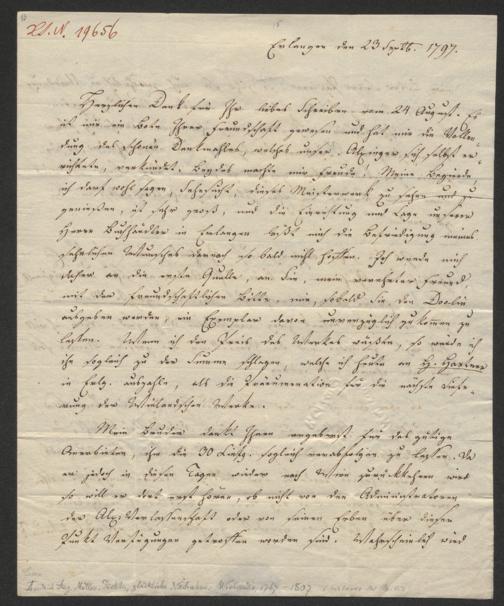 H.I.N. 19656
Erlangen den 23 Septb. 1797.
Herzlichen Dank für Ihr liebes Schreiben vom 24 August. Es
ist mir ein Bote Ihrer Freundschaft gewesen und hat mir die Vollen-
dung des schönen Denkmahles, welches unser Alxinger sich selbst er-
richtete, verkündet. Beydes machte mir Freude. Meine Begierde,
ich darf wohl sagen, Sehnsucht, dieses Meisterwerk zu sehen und zu
genießen, ist sehr groß, und die Einrichtung und Lage unserer
Herrn Buchhändler in Erlangen läßt mich die Befriedigung meines
sehnlichen Wunsches darnach so bald nicht hoffen. Ich wende mich
daher an die erste Quelle, an Sie, mein verehrter Freund,
mit der freundschaftlichen Bitte, mir, sobald Sie den Doolin
ausgeben werden, ein Exemplar davon unverzüglich zukommen zu
lassen. Wenn ich den Preis des Werkes wüßte, so würde ich
ihn sogleich zu der Summe schlagen, welche ich heute an
in auszahle, als die Pränumeration für die nächste Liefe-
rung der Wielandschen Werke.
Mein Bruder dankt Ihnen ergebenst für das gütige
Anerbieten, ihm die 30 sogleich verabfolgen zu lassen. Da
er jedoch in diesen Tagen wieder nach Wien zurückkehren wird
so will er dort erst hören, ob nicht von den Administratoren
der Alx. Verlassenschaft oder von seinen Erben über diesen
Punkt Verfügungen getroffen worden sind. Wahrscheinlich wird
Müller, Dichter, 1767 – 1807